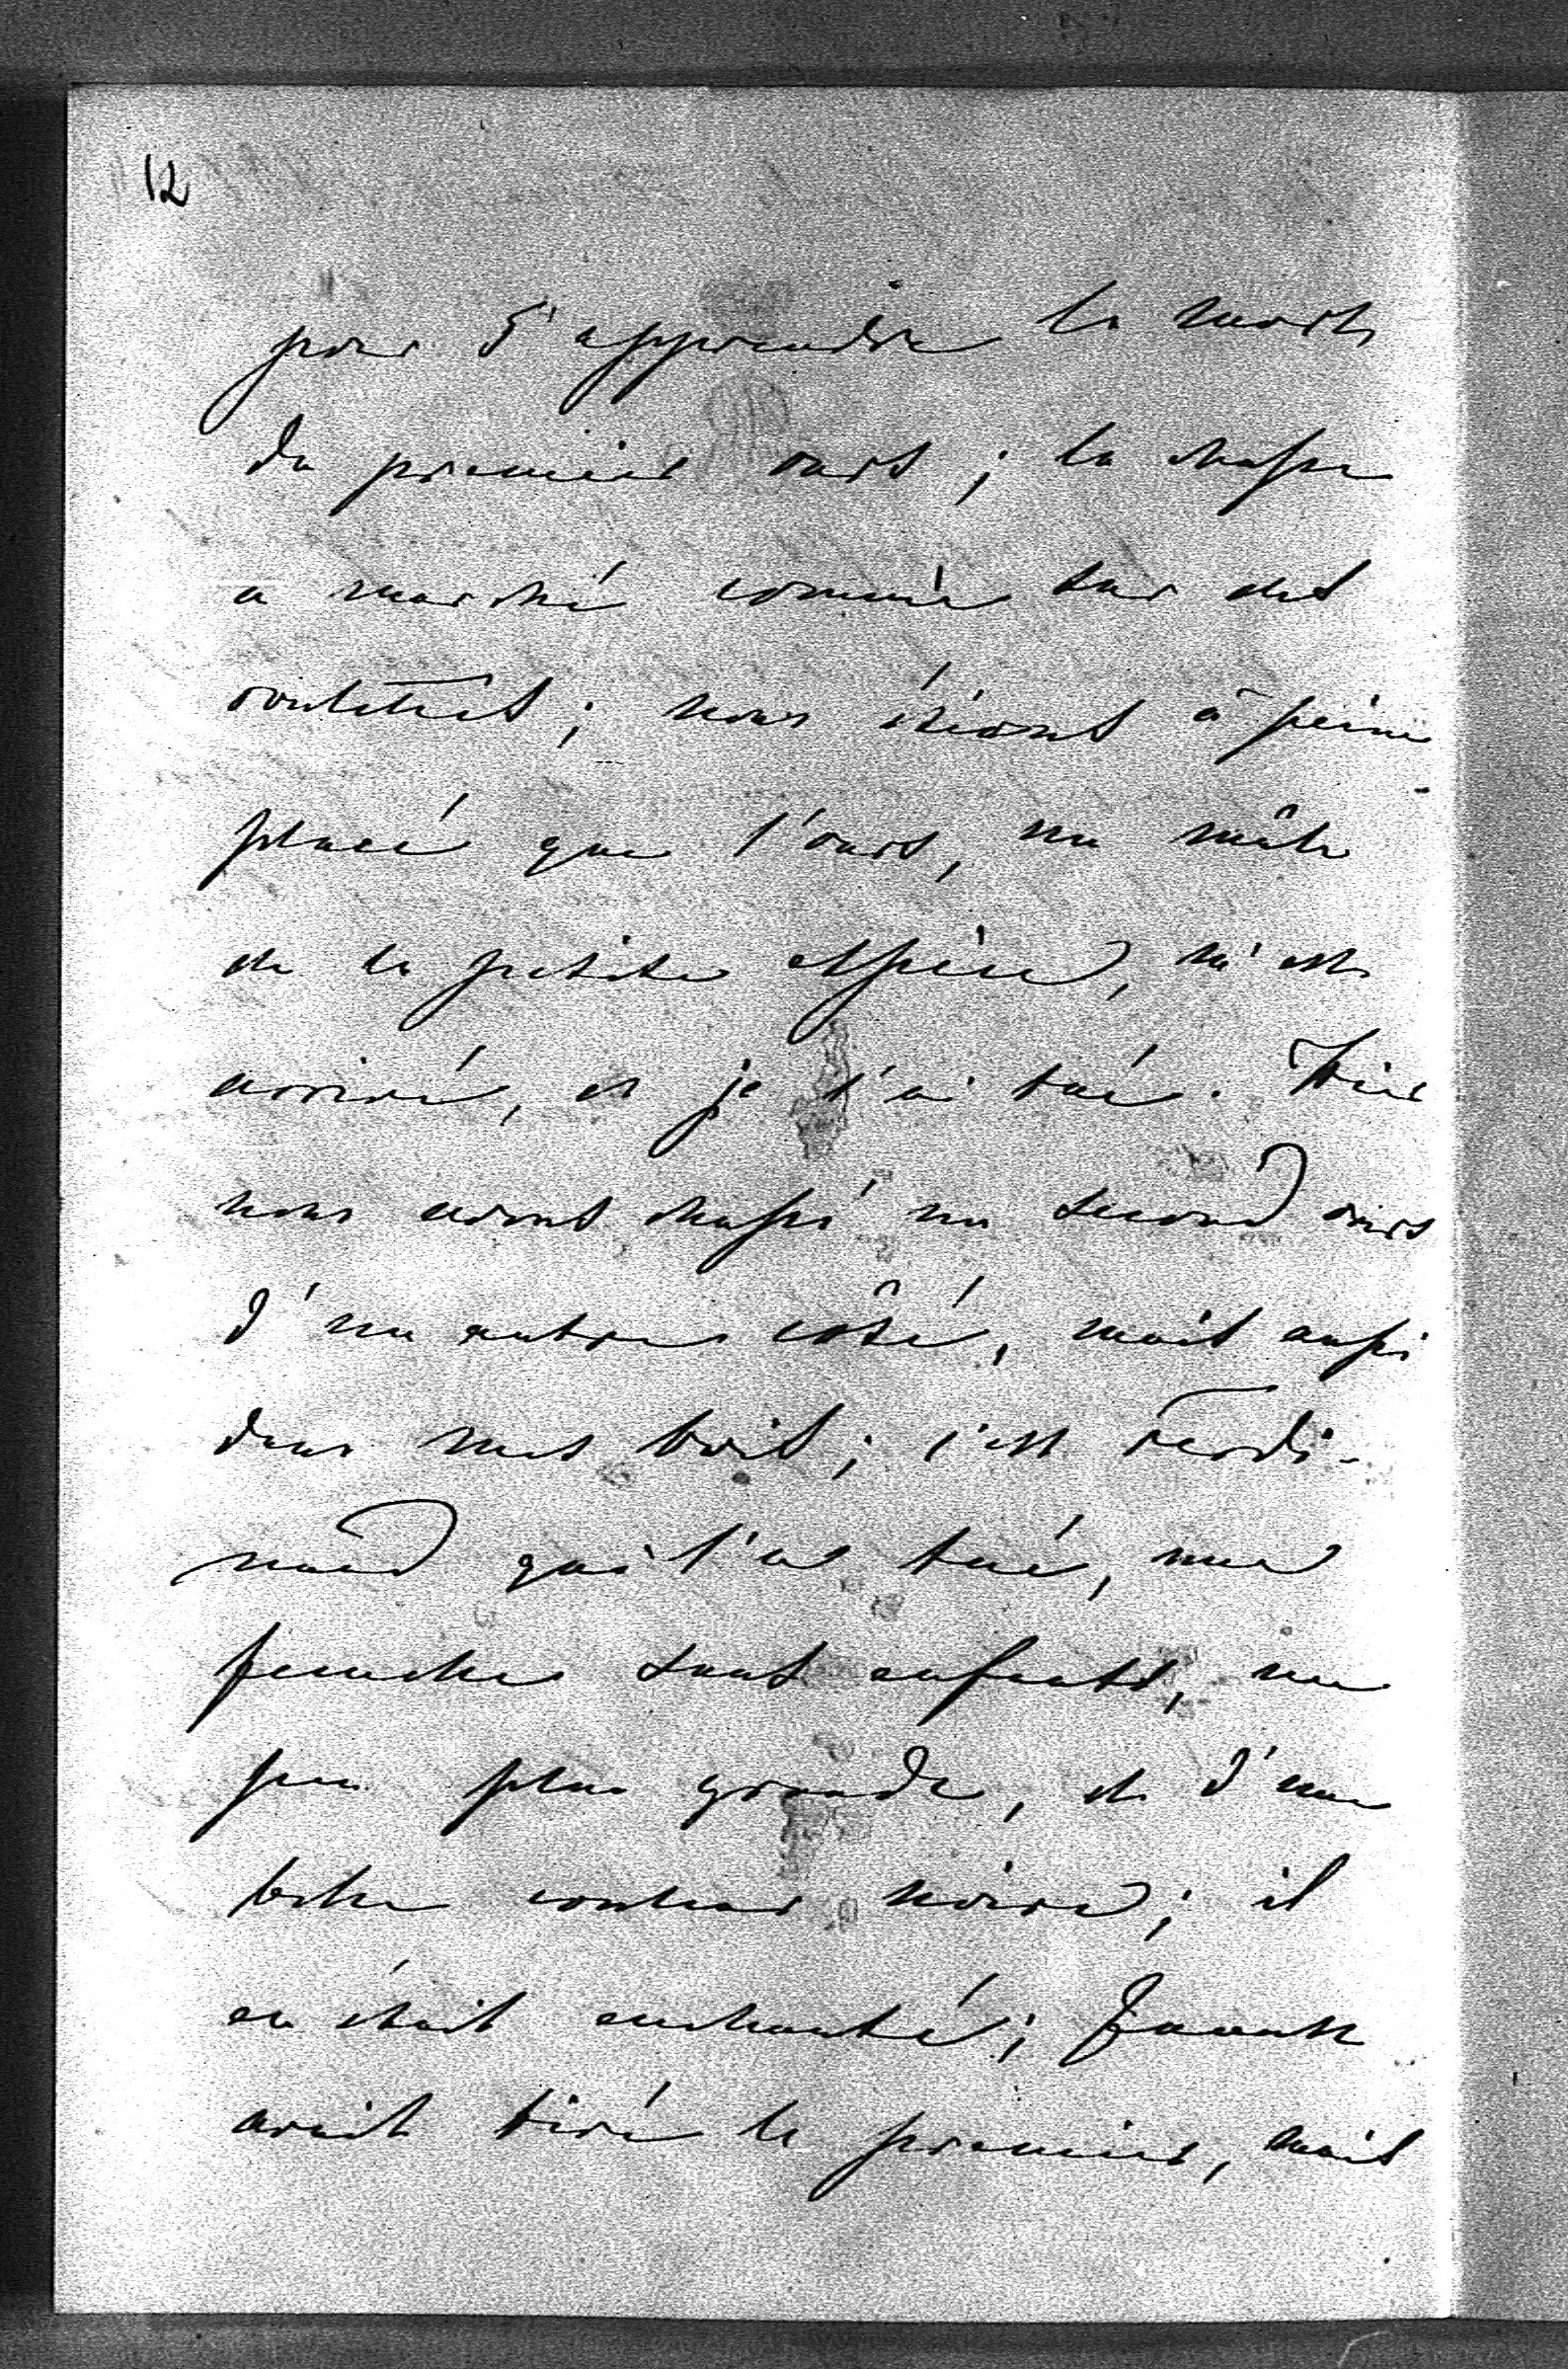 12
pour t'apprendre la mort
du premier ours ; la chasse
a marché comme sur des
roulettes ; nous étions à peine
placé que l'ours, un mâle
de la petite espèce, m'est
arrivé, et je l'ai tué. Hier
nous avons chassé un second ours
d'un autre côté, mais aussi
dans mes bois ; c'est Ferdi-
nand qui l'a tué, une
femelle sans enfants, un
peu plus grande, et d'une
belle couleur noire ; il
en était enchanté ;
avait tiré le premier, mais